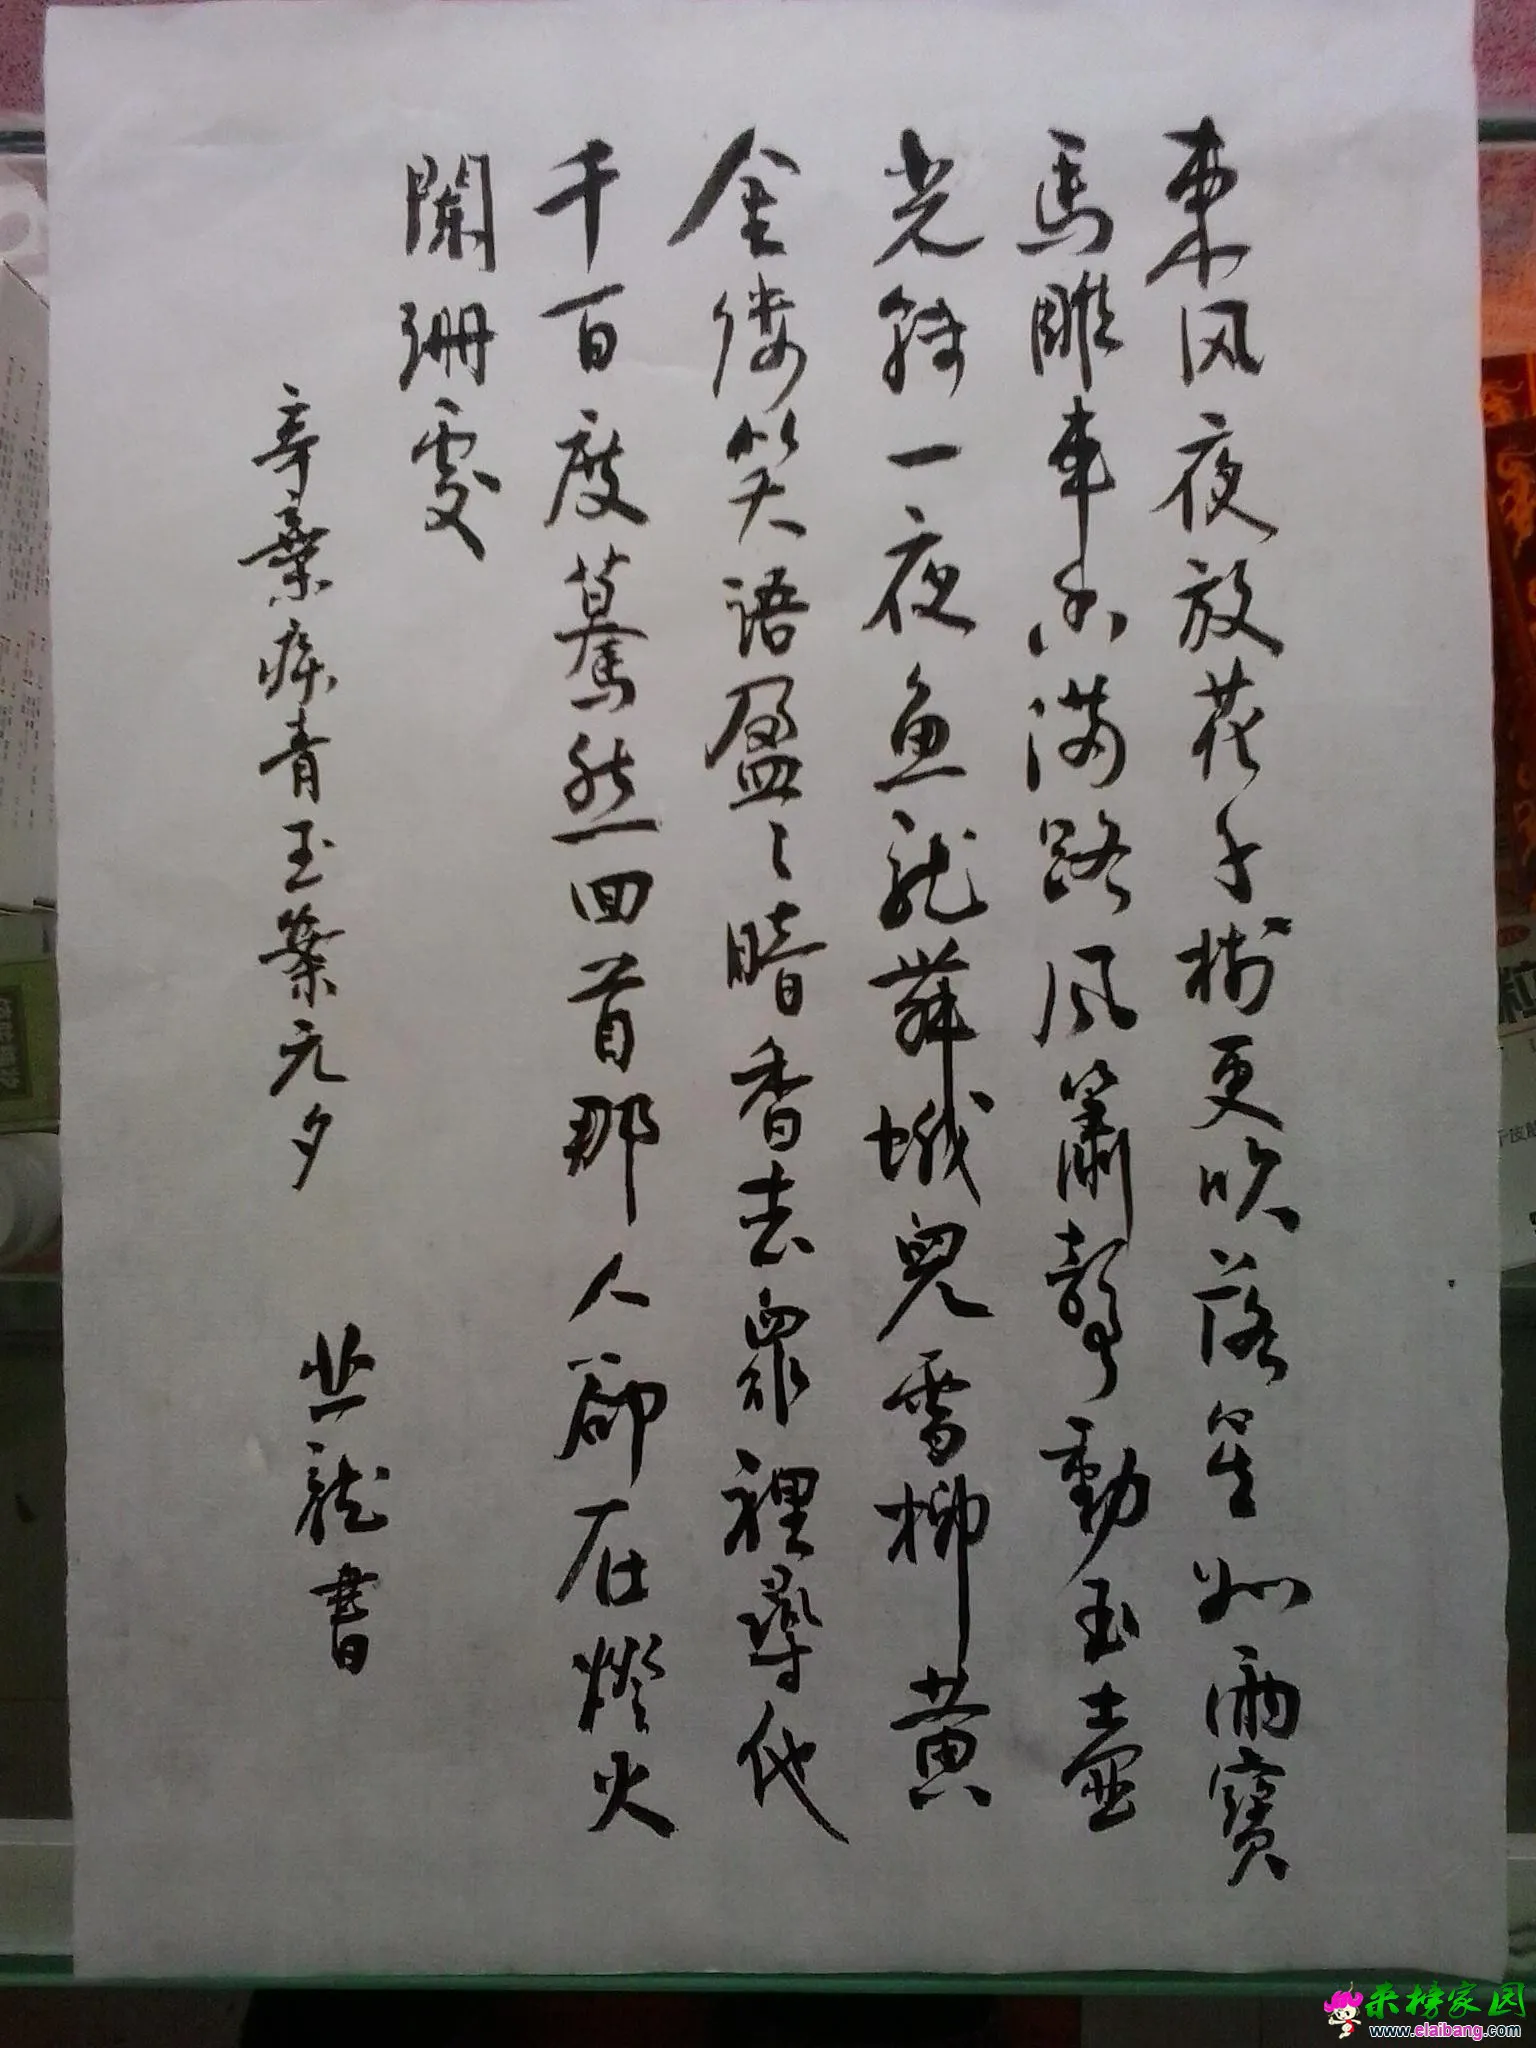 東风夜放花千樹更吹落星如雨寳
馬雕車香满路风簫聲動玉壺
光轉一夜鱼龙舞蛾兒雪柳黄
金缕笑语盈〻暗香去眾裡尋他
千百度驀然回首那人卻在燈火
闌珊處
辛棄疾青玉案元夕
龙書
来榜家园
www.elaibang.com